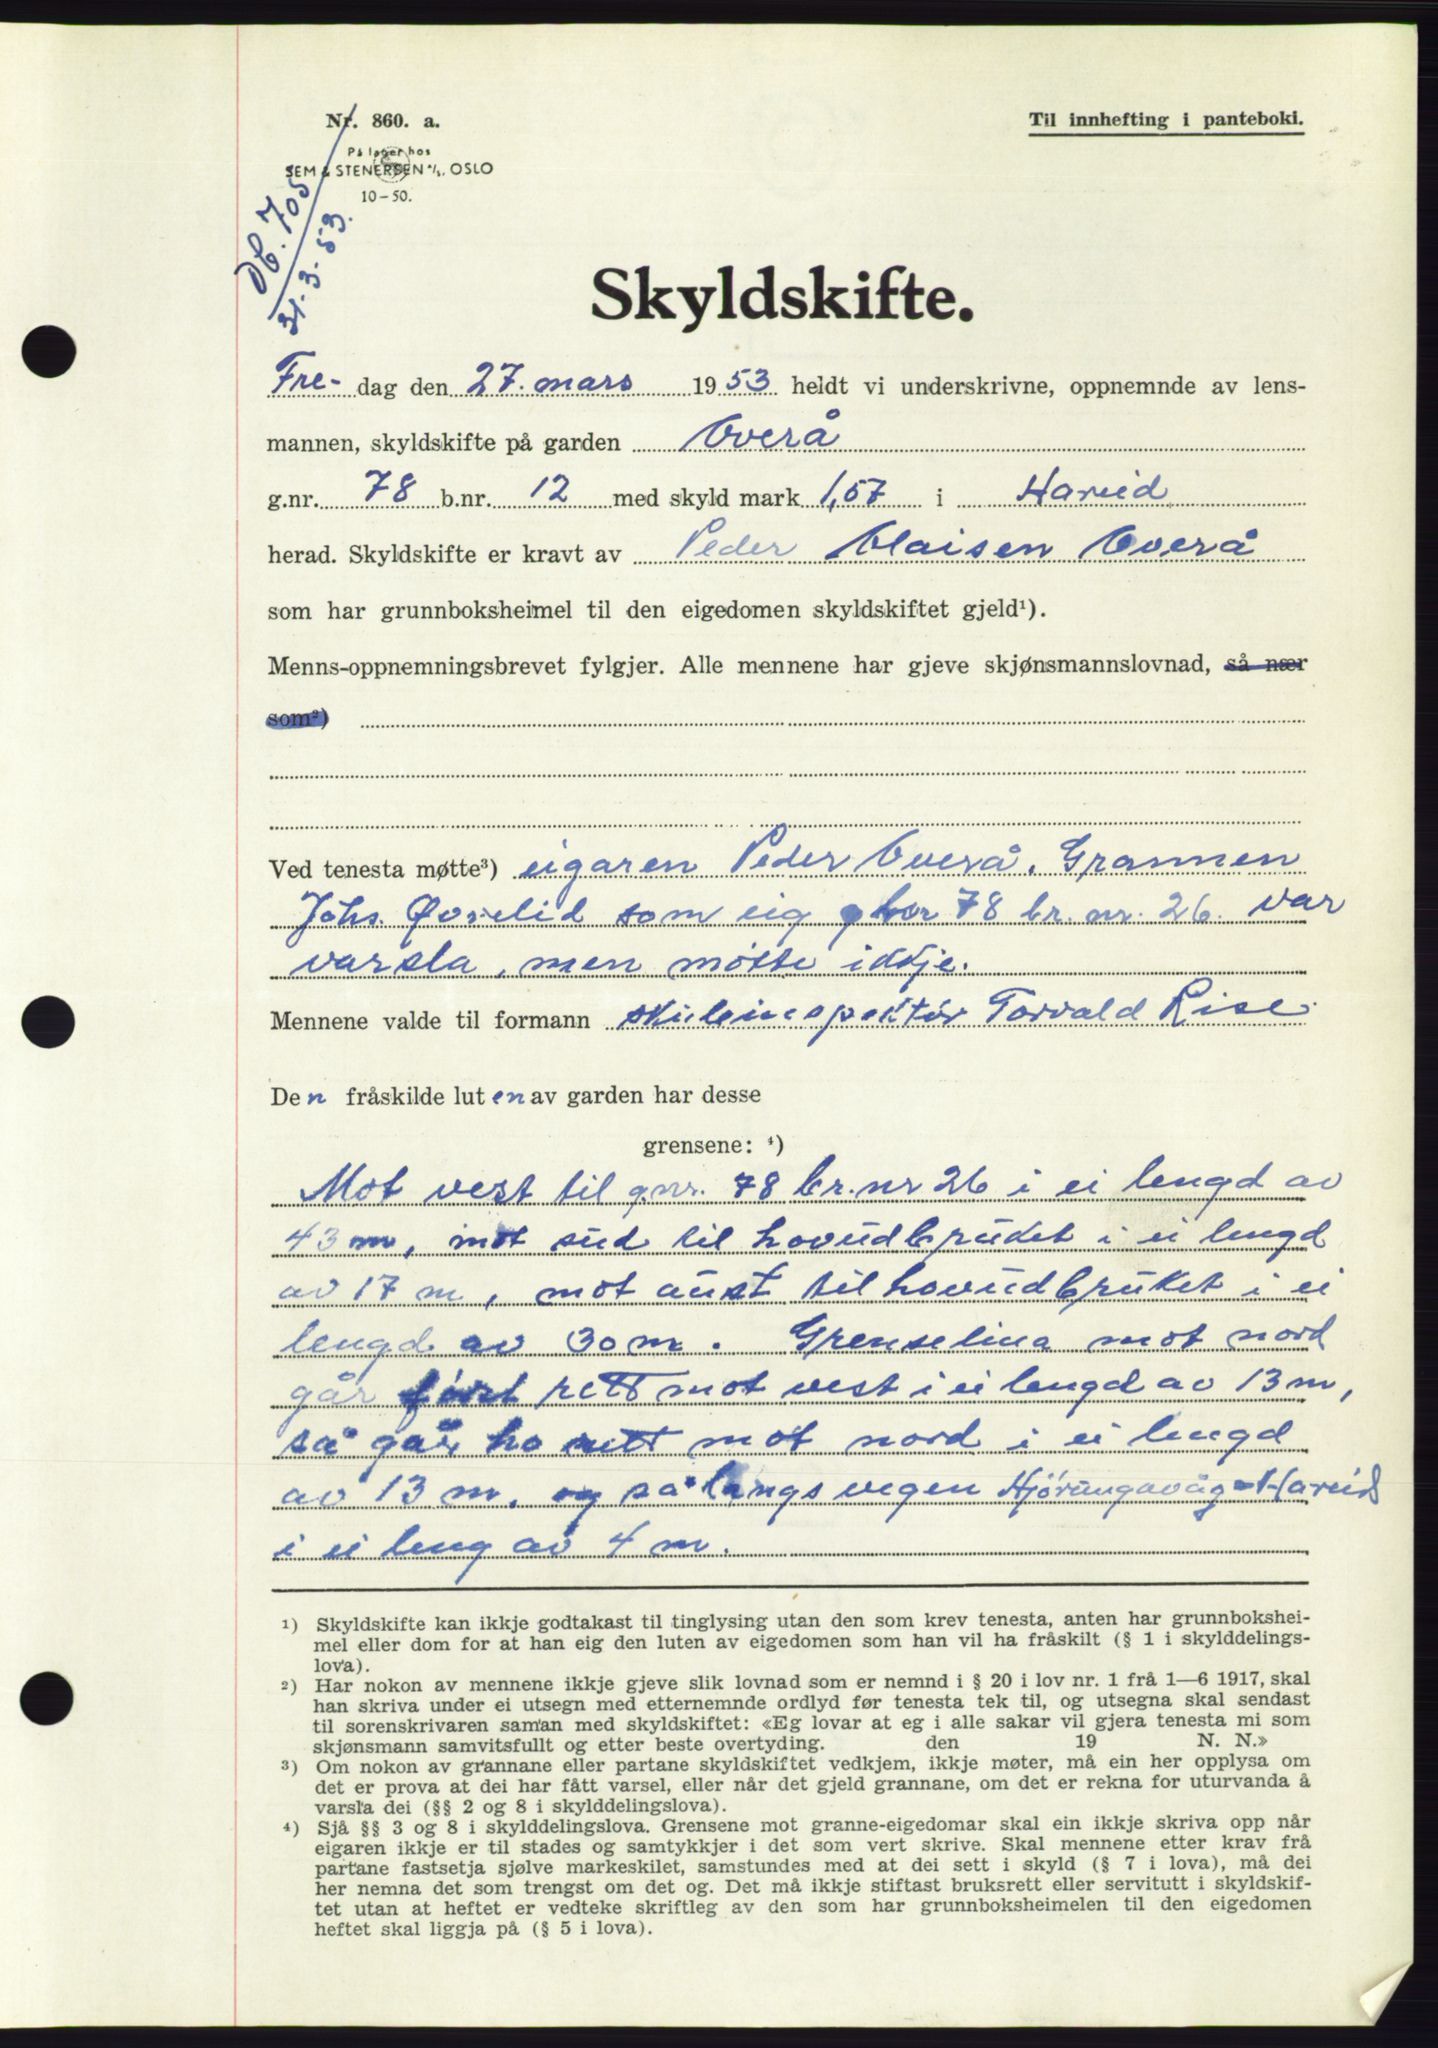 Nr. 860. a.
Til innhefting i panteboki.
På lager hos
SEM & STENERSEN A/S, OSLO
10-50.
Db. 705
31-3-53.
Skyldskifte.
Fre- dag den 27. mars 1953 heldt vi underskrivne, oppnemnde av lens-
mannen, skyldskifte på garden Overå
g.nr. 78 b.nr. 12 med skyld mark 1,57 i Hareid
herad. Skyldskifte er kravt av Peder Claisen Overå
som har grunnboksheimel til den eigedomen skyldskiftet gjeld¹).
Menns-oppnemningsbrevet fylgjer. Alle mennene har gjeve skjønsmannslovnad, så nær
som²)
Ved tenesta møtte³) eigaren Peder Overå. Grannen
Johs. Øvrelid som eig gbnr 78 br. nr. 26. var
varsla, men møtte ikkje.
Mennene valde til formann skuleinspektør Torvald Rise.
Den fråskilde luten av garden har desse
grensene: ⁴)
Mot vest til g.nr. 78 br. nr 26 i ei lengd av
43 m, mot sud til hovudbruket i ei lengd
av 17 m, mot aust til hovudbruket i ei
lengd av 30 m. Grenselina mot nord
går først rett mot vest i ei lengd av 13 m,
så går ho rett mot nord i ei lengd
av 13 m. og så langs vegen Hjørungavåg-Hareid
i ei leng av 4 m.
¹) Skyldskifte kan ikkje godtakast til tinglysing utan den som krev tenesta, anten har grunnbokshei-
mel eller dom for at han eig den luten av eigedomen som han vil ha fråskilt (§ 1 i skylddelings-
lova).
²) Har nokon av mennene ikkje gjeve slik lovnad som er nemnd i § 20 i lov nr. 1 frå 1—6 1917, skal
han skriva under ei utsegn med etternemnde ordlyd før tenesta tek til, og utsegna skal sendast
til sorenskrivaren saman med skyldskiftet: «Eg lovar at eg i alle sakar vil gjera tenesta mi som
skjønsmann samvitsfullt og etter beste overtyding. den 19 N. N.»
³) Om nokon av grannane eller partane skyldskiftet vedkjem, ikkje møter, må ein her opplysa om
det er prova at dei har fått varsel, eller når det gjeld grannane, om det er rekna for uturvanda å
varsla dei (§§ 2 og 8 i skylddelingslova).
⁴) Sjå §§ 3 og 8 i skylddelingslova. Grensene mot granne-eigedomar skal ein ikkje skriva opp når
eigaren ikkje er til stades og samtykkjer i det som vert skrive. Skal mennene etter krav frå
partane fastsetja sjølve markeskilet, samstundes med at dei sett i skyld (§ 7 i lova), må dei
her nemna det som trengst om det og. Det må ikkje stiftast bruksrett eller servitutt i skyldskif-
tet utan at heftet er vedteke skriftleg av den som har grunnboksheimelen til den eigedomen
heftet skal liggja på (§ 5 i lova).